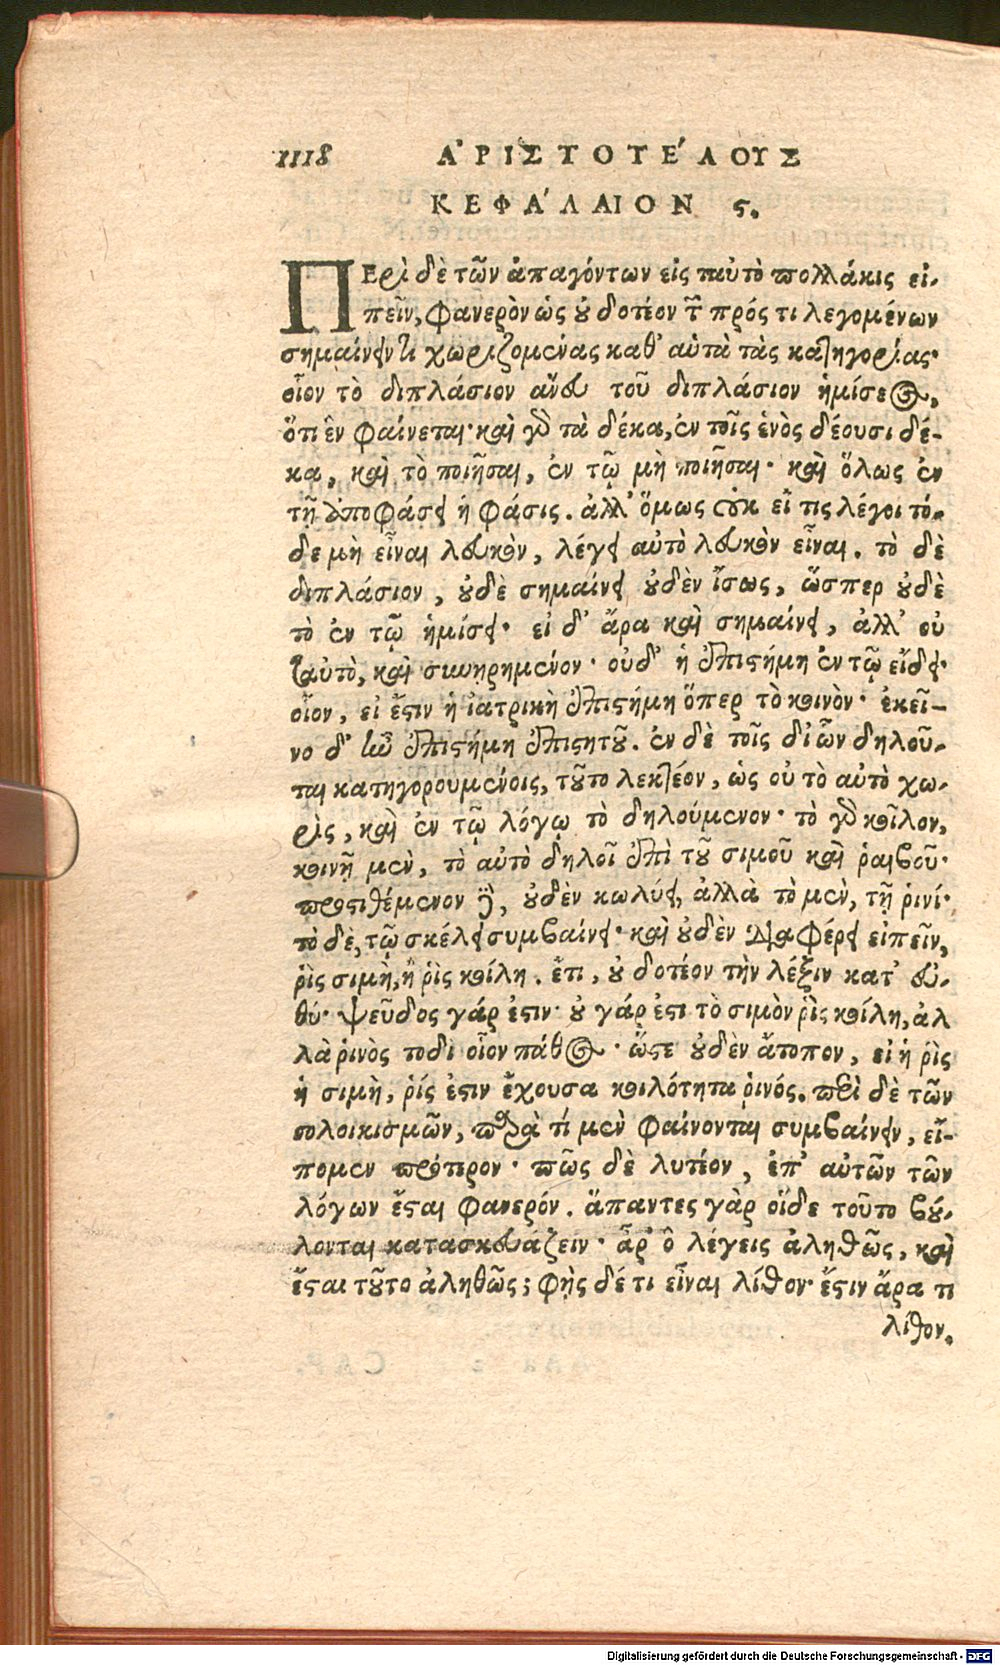 1118 ἈΡΙΣΤΟΤΈΛΟΥΣ
ΚΕΦΆΛΑΙΟΝ ϛ.
ΠΕρὶ δὲ τῶν ἀπαγόντων εἰς ταὐτὸ πολλάκις εἰ-
πεῖν, φανερὸν ὡς οὐ δοτέον τῶν πρός τι λεγομένων
σημαίνειν τι χωριζομένας καθ' αὑτὰ τὰς κατηγορίας·
οἷον τὸ διπλάσιον ἄνευ τοῦ διπλάσιον ἡμίσεος,
ὅτι ἓν φαίνεται· καὶ γὰρ τὰ δέκα, ἐν τοῖς ἑνὸς δέουσι δέ-
κα, καὶ τὸ ποιῆσαι, ἐν τῷ μὴ ποιῆσαι· καὶ ὅλως ἐν
τῇ ἀποφάσει ἡ φάσις. ἀλλ' ὅμως οὐκ εἴ τις λέγοι τό-
δε μὴ εἶναι λευκὸν, λέγει αὐτὸ λευκὸν εἶναι. τὸ δὲ
διπλάσιον, οὐδὲ σημαίνει οὐδὲν ἴσως, ὥσπερ οὐδὲ
τὸ ἐν τῷ ἡμίσει· εἰ δ' ἄρα καὶ σημαίνει, ἀλλ' οὐ
ταὐτὸ, καὶ συνῃρημένον· οὐδ' ἡ ἐπιστήμη ἐν τῷ εἴδει·
οἷον, εἰ ἔστιν ἡ ἰατρικὴ ἐπιστήμη ὅπερ τὸ κοινὸν· ἐκεῖ-
νο δ' ἦν ἐπιστήμη ἐπιστητοῦ. ἐν δὲ τοῖς δι' ὧν δηλοῦ-
ται κατηγορουμένοις, τοῦτο λεκτέον, ὡς οὐ τὸ αὐτὸ χω-
ρὶς, καὶ ἐν τῷ λόγῳ τὸ δηλούμενον· τὸ γὰρ κοῖλον,
κοινῇ μὲν, τὸ αὐτὸ δηλοῖ ἐπὶ τοῦ σιμοῦ καὶ ῥαιβοῦ·
προστιθέμενον δὲ, οὐδὲν κωλύει, ἀλλὰ τὸ μὲν, τῇ ῥινί·
τὸ δὲ, τῷ σκέλει συμβαίνει· καὶ οὐδὲν διαφέρει εἰπεῖν,
ῥὶς σιμὴ, ἢ ῥὶς κοίλη. ἔτι, οὐ δοτέον τὴν λέξιν κατ' εὐ-
θύ· ψεῦδος γάρ ἐστιν· οὐ γάρ ἐστι τὸ σιμὸν ῥὶς κοίλη, ἀλ
λὰ ῥινὸς τοδὶ οἷον πάθος· ὥστε οὐδὲν ἄτοπον, εἰ ἡ ῥὶς
ἡ σιμὴ, ῥίς ἐστιν ἔχουσα κοιλότητα ῥινός. περὶ δὲ τῶν
σολοικισμῶν, παρὰ τί μὲν φαίνονται συμβαίνειν, εἴ-
πομεν πρότερον· πῶς δὲ λυτέον, ἐπ' αὐτῶν τῶν
λόγων ἔσται φανερόν. ἅπαντες γὰρ οἵδε τοῦτο βού-
λονται κατασκευάζειν· ἆρ' ὃ λέγεις ἀληθῶς, καὶ
ἔσται τοῦτο ἀληθῶς; φῂς δέ τι εἶναι λίθον· ἔστιν ἄρα τι
λίθον.
Digitalisierung gefördert durch die Deutsche Forschungsgemeinschaft - DFG